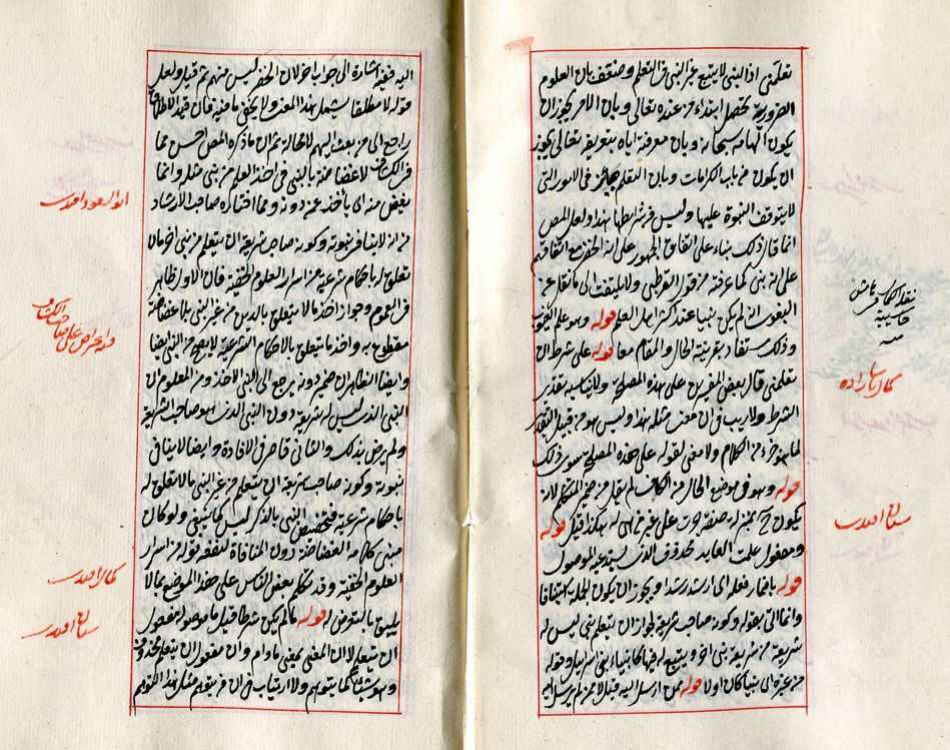 تعلمنى اذا النبى لا يتبع غير النبى فى التعلم وضعف بان العلوم
الضرورية تحصل ابتداء من عنده تعالى وبان الامر يجوز ان
يكون الهامه سبحانه وبان معرفته اياه بتعريفه تعالى يجوز
ان يكون من باب الكرامات وبان التعلم جائز فى الامور التى
لا يتوقف النبوة عليها وليس من شرائطها هذا ولعل المص
انما قال ذلك بناء على اتفاق الجمهور على انه الخضر مع اتفاقهم
على انه نبى كما عرفته من قول القرطبى ولا يلتفت الى ما نقل عن
البغوى انه لم يكن نبيا عند اكثر اهل العلم قوله وهو علم الغيوب
وذلك مستفاد بقرينة الحال والمقام معا قوله على شرط ان
تعلمنى قال بعض
الشرط ولا ريب فى ان معنى مثله هذا وليس هو من قبيل التقدير
لما هو جزء من الكلام ولا معنى لقوله على هذه المصلح سوى ذلك
قوله وهو فى موضع الحال من الكاف لم يقل من ضمير المتكلم لانه
يكون ح بمنزلة صفة جرت على غير من هى له هكذا قيل قوله
ومفعول علمت العائد محذوف الذى يستدعيه الموصول
قوله باضمار فعله اى ارشد رشدا ويجوز ان يكون الجملة استينافا
وانما اتى بقوله وكونه صاحب شريعة لجواز ان يتعلم نبى ليس له
شريعة من شريعة نبى اخر ويتبع له فيها كانبياء بنى اسرائيل وقوله
من غيره اى نبيا كان اولا قوله ممن ارسل اليه قيل
كمال پاشا زاده
سنان افندى
اليه ففيه اشارة الى جواب اخر لان الخضر ليس منهم ثم قيل ولعل
قوله لا مطلقا يشمل هذا المعنى ولا يخفى ما فيه فان قيد الاطلاق
راجع الى من بعث اليهم لا محالة ثم ان ما ذكره المص احسن مما
فى الكشاف لا غضاضة بالنبى فى اخذ العلم من نبى مثله وانما
يغض منه ان ياخذ عمن دونه ومما اختاره صاحب الارشاد
من انه لا ينافى نبوته وكونه صاحب شريعة ان يتعلم من نبى اخر ما لا
تعلق له باحكام شرعية من اسرار العلوم الخفية فان الاول ظاهر
فى العموم وجواز اخذ ما لا يتعلق بالدين من غير النبى بلا غضاضة
مقطوع به واخذ ما يتعلق بالاحكام الشرعية لا يصح من النبى ايضا
وايضا الظاهر ان ضمير دونه يرجع الى النبى الاخذ ومن المعلوم ان
النبى الذى ليس له شريعة دون النبى الذى هو صاحب الشريعة
ولم يرض بذلك والثانى قاصر فى الافادة وايضا لا ينافى
نبوته وكونه صاحب شريعة ان يتعلم من غير النبى ما لا تعلق له
باحكام شرعية فتخصيص النبى بالذكر ليس كما ينبغى ولو كان
مبنى كلامه الغضاضة دون المنافاة لتفقه قوله من اسرار
العلوم الخفية وقد تكلم بعض الناس على هذا الموضع بما لا
يليق بالتعرض له قوله ما لم يكن شرطا قيل ما موصولة مفعول
ان يتعلم لان المعنى بمعنى ما دام وان مفعول ان يتعلم محذوف
ابو السعود افندى
كمال افندى
سنان افندى